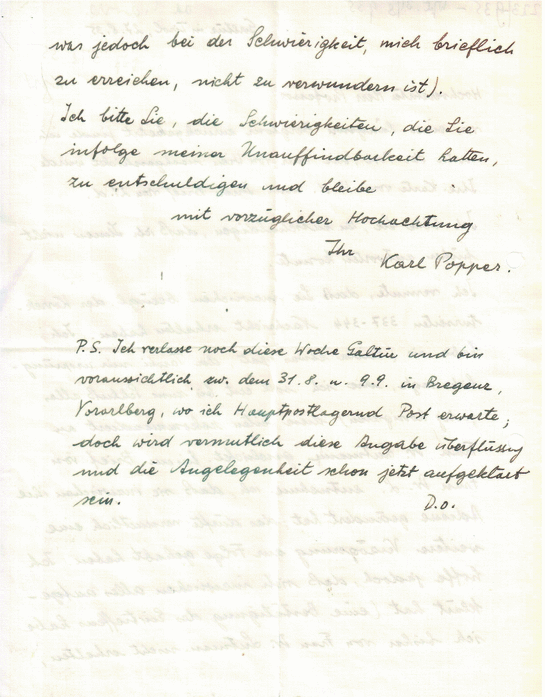 was jedoch bei der Schwierigkeit, mich brieflich
zu erreichen, nicht zu verwundern ist).
Ich bitte Sie, die Schwierigkeiten, die Sie
infolge meiner Unauffindbarkeit hatten,
zu entschuldigen und bleibe
mit vorzüglicher Hochachtung
Ihr
Karl Popper.
P.S. Ich verlasse noch diese Woche Galtür und bin
voraussichtlich zw. dem 31.8. u. 9.9. in Bregenz,
Vorarlberg, wo ich Hauptpostlagernd Post erwarte;
doch wird vermutlich diese Angabe überflüssig
und die Angelegenheit schon jetzt aufgeklärt
sein.
D.O.